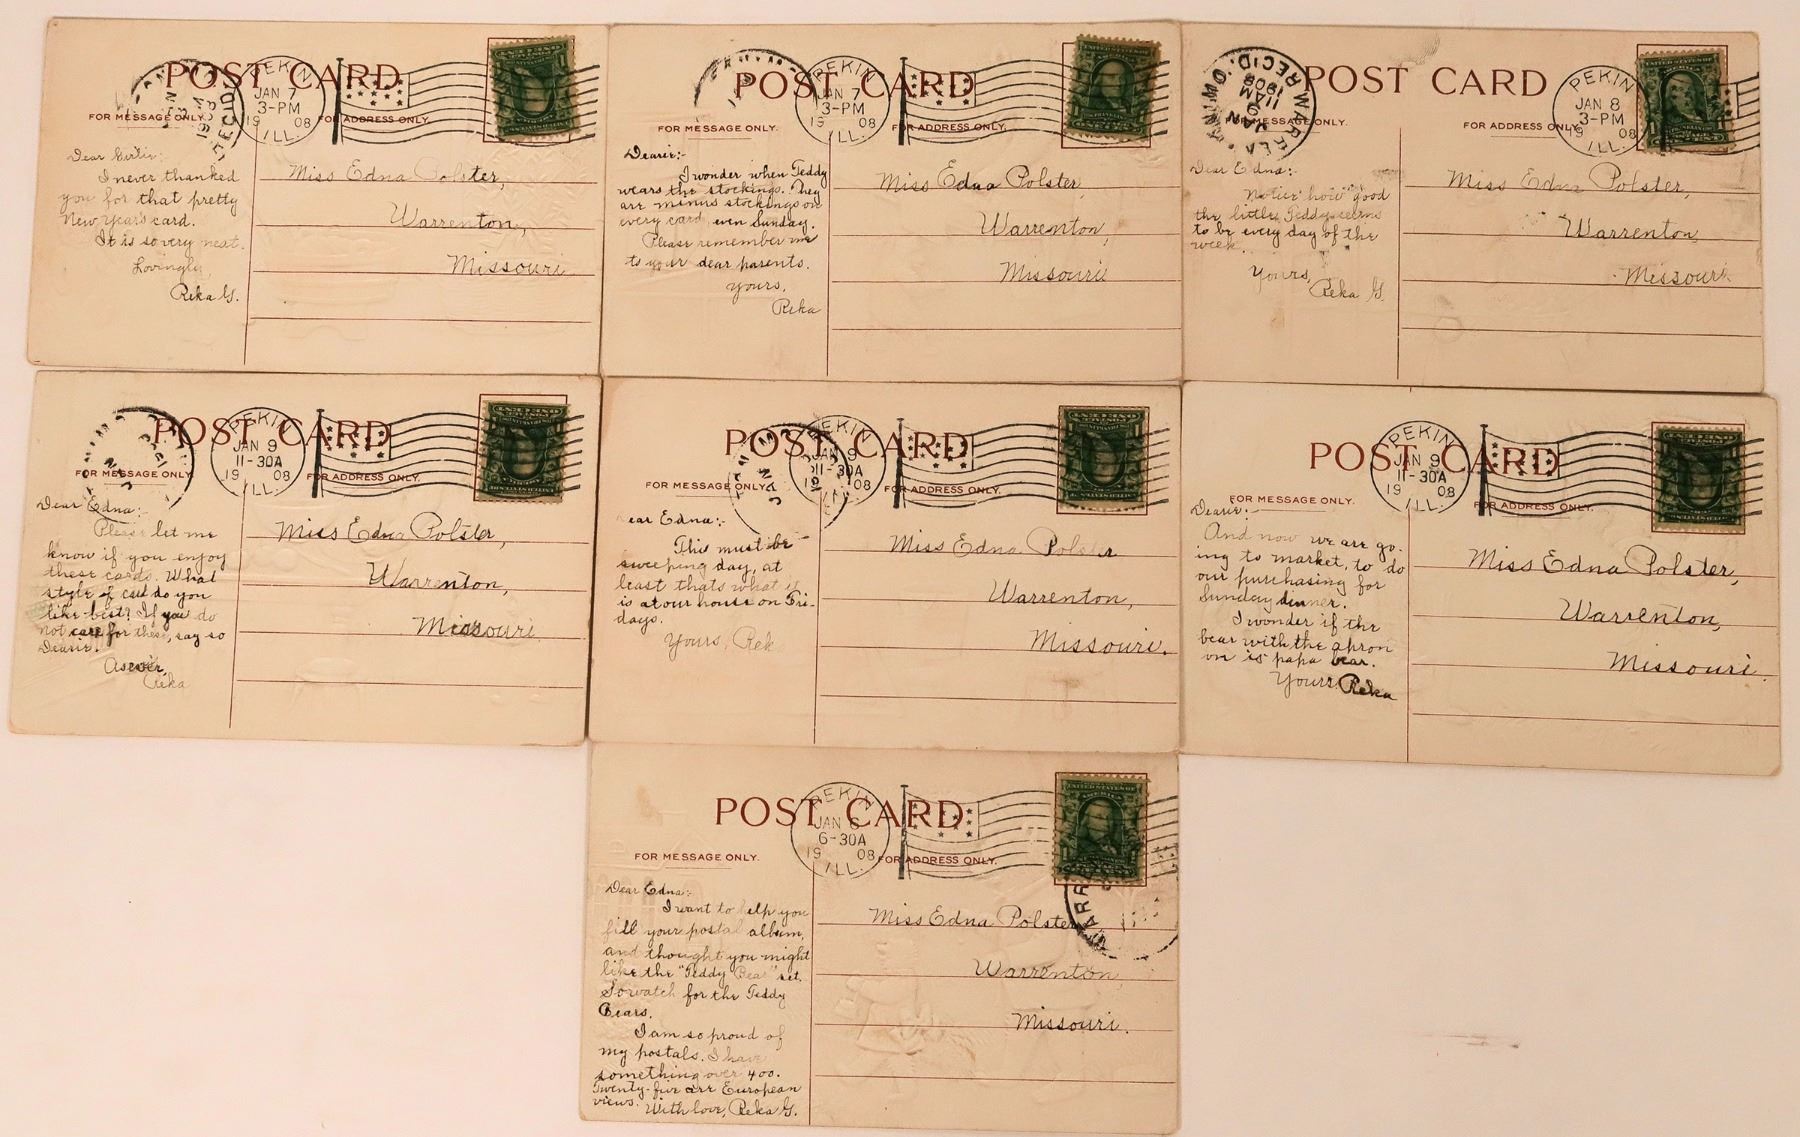 POST CARD
PEKIN
JAN 7
3-PM
19 08
ILL.
FOR MESSAGE ONLY.
FOR ADDRESS ONLY.
Dear Girlie:
I never thanked
you for that pretty
New Year's card.
It is so very neat.
Lovingly,
Reka G.
Miss Edna Polster,
Warrenton,
Missouri
POST CARD
PEKIN
JAN 7
3-PM
19 08
ILL.
FOR MESSAGE ONLY.
FOR ADDRESS ONLY.
UNITED STATES OF AMERICA
Dearie:-
I wonder when Teddy
wears the stockings. They
are minus stockings on
every card, even Sunday.
Please remember me
to your dear parents.
Yours,
Reka
Miss Edna Polster,
Warrenton,
Missouri
POST CARD
REC'D.
JAN
11 AM
1908
PEKIN
JAN 8
3-PM
19 08
ILL.
FOR MESSAGE ONLY.
FOR ADDRESS ONLY.
Dear Edna:-
Notice how "good"
the little Teddy seems
to be every day of the
week.
Yours,
Reka G.
Miss Edna Polster,
Warrenton,
Missouri
POST CARD
PEKIN
JAN 9
11-30A
19 08
ILL.
FOR MESSAGE ONLY
FOR ADDRESS ONLY.
Dear Edna:-
Please let me
know if you enjoy
these cards. What
style of card do you
like best? If you do
not care for these, say so
Dearie.
As ever,
Reka
Miss Edna Polster,
Warrenton,
Missouri
POST CARD
PEKIN
JAN 9
11-30A
19 08
ILL.
FOR MESSAGE ONLY.
FOR ADDRESS ONLY.
ear Edna:-
This must be
sweeping day, at
least thats what it
is at our house on Fri-
days.
Yours, Rek
Miss Edna Polster
Warrenton,
Missouri.
POST CARD
PEKIN
JAN 9
11-30A
19 08
ILL.
FOR MESSAGE ONLY.
FOR ADDRESS ONLY.
Dearie:-
And now we are go-
ing to market, to do
our purchasing for
Sunday dinner.
I wonder if the
bear with the apron
on is papa bear.
Yours, Reka
Miss Edna Polster,
Warrenton,
Missouri.
POST CARD
PEKIN
JAN 6
6-30A
19 08
ILL.
FOR MESSAGE ONLY.
FOR ADDRESS ONLY.
UNITED STATES OF AMERICA
Dear Edna:-
I want to help you
fill your postal album,
and thought you might
like the "Teddy Bear" set.
So watch for the Teddy
Bears.
I am so proud of
my postals. I have
something over 400.
Twenty-five are European
views. With love, Reka G.
Miss Edna Polster
Warrenton,
Missouri.